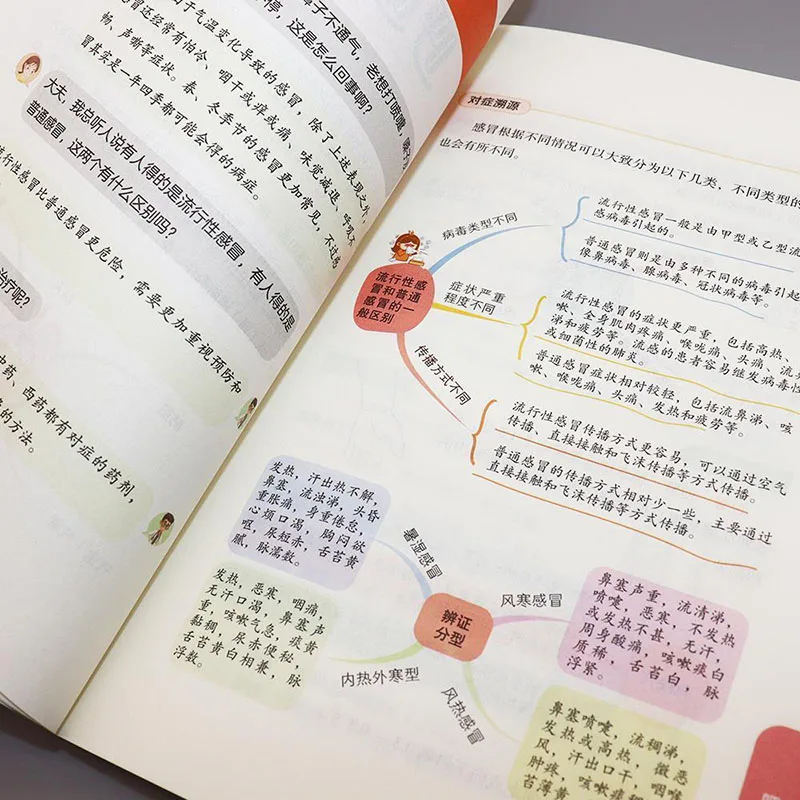 鼻子不通气，老想打喷嚏，嗓子
停，这是怎么回事啊？
由于气温变化导致的感冒，除了上述表现之外，
冒还经常有怕冷、咽干或痒或痛、味觉减退、呼吸不
畅、声嘶等症状。春、冬季节的感冒更加常见，不过感
冒其实是一年四季都可能会得的病症。
大夫，我总听人说有人得的是流行性感冒，有人得的是
普通感冒，这两个有什么区别吗？
流行性感冒比普通感冒更危险，需要更加重视预防和
治疗呢？
中药、西药都有对症的药剂，
的方法。
对症溯源
感冒根据不同情况可以大致分为以下几类，不同类型的
也会有所不同。
流行性感
冒和普通
感冒的一
般区别
病毒类型不同
流行性感冒一般是由甲型或乙型流
感病毒引起的。
普通感冒则是由多种不同的病毒引起
像鼻病毒、腺病毒、冠状病毒等。
症状严重
程度不同
流行性感冒的症状更严重，包括高热、
嗽、全身肌肉疼痛、喉咙痛、头痛、流鼻
涕和疲劳等。流感的患者容易继发病毒性
或细菌性的肺炎。
普通感冒症状相对较轻，包括流鼻涕、咳
嗽、喉咙痛、头痛、发热和疲劳等。
传播方式不同
流行性感冒传播方式更容易，可以通过空气
传播、直接接触和飞沫传播等方式传播。
普通感冒的传播方式相对少一些，主要通过
直接接触和飞沫传播等方式传播。
辨证
分型
暑湿感冒
发热，汗出热不解，
鼻塞，流浊涕，头昏
重胀痛，身重倦怠，
心烦口渴，胸闷欲
呕，尿短赤，舌苔黄
腻，脉濡数。
风寒感冒
鼻塞声重，流清涕，
喷嚏，恶寒，不发热
或发热不甚，无汗，
周身酸痛，咳嗽痰白
质稀，舌苔白，脉
浮紧。
内热外寒型
发热，恶寒，咽痛，
无汗口渴，鼻塞声
重，咳嗽气急，痰黄
黏稠，尿赤便秘，
舌苔黄白相兼，脉
浮数。
风热感冒
鼻塞喷嚏，流稠涕，
发热或高热，微恶
风，汗出口干，咽喉
肿疼，咳嗽痰稠
苔薄黄